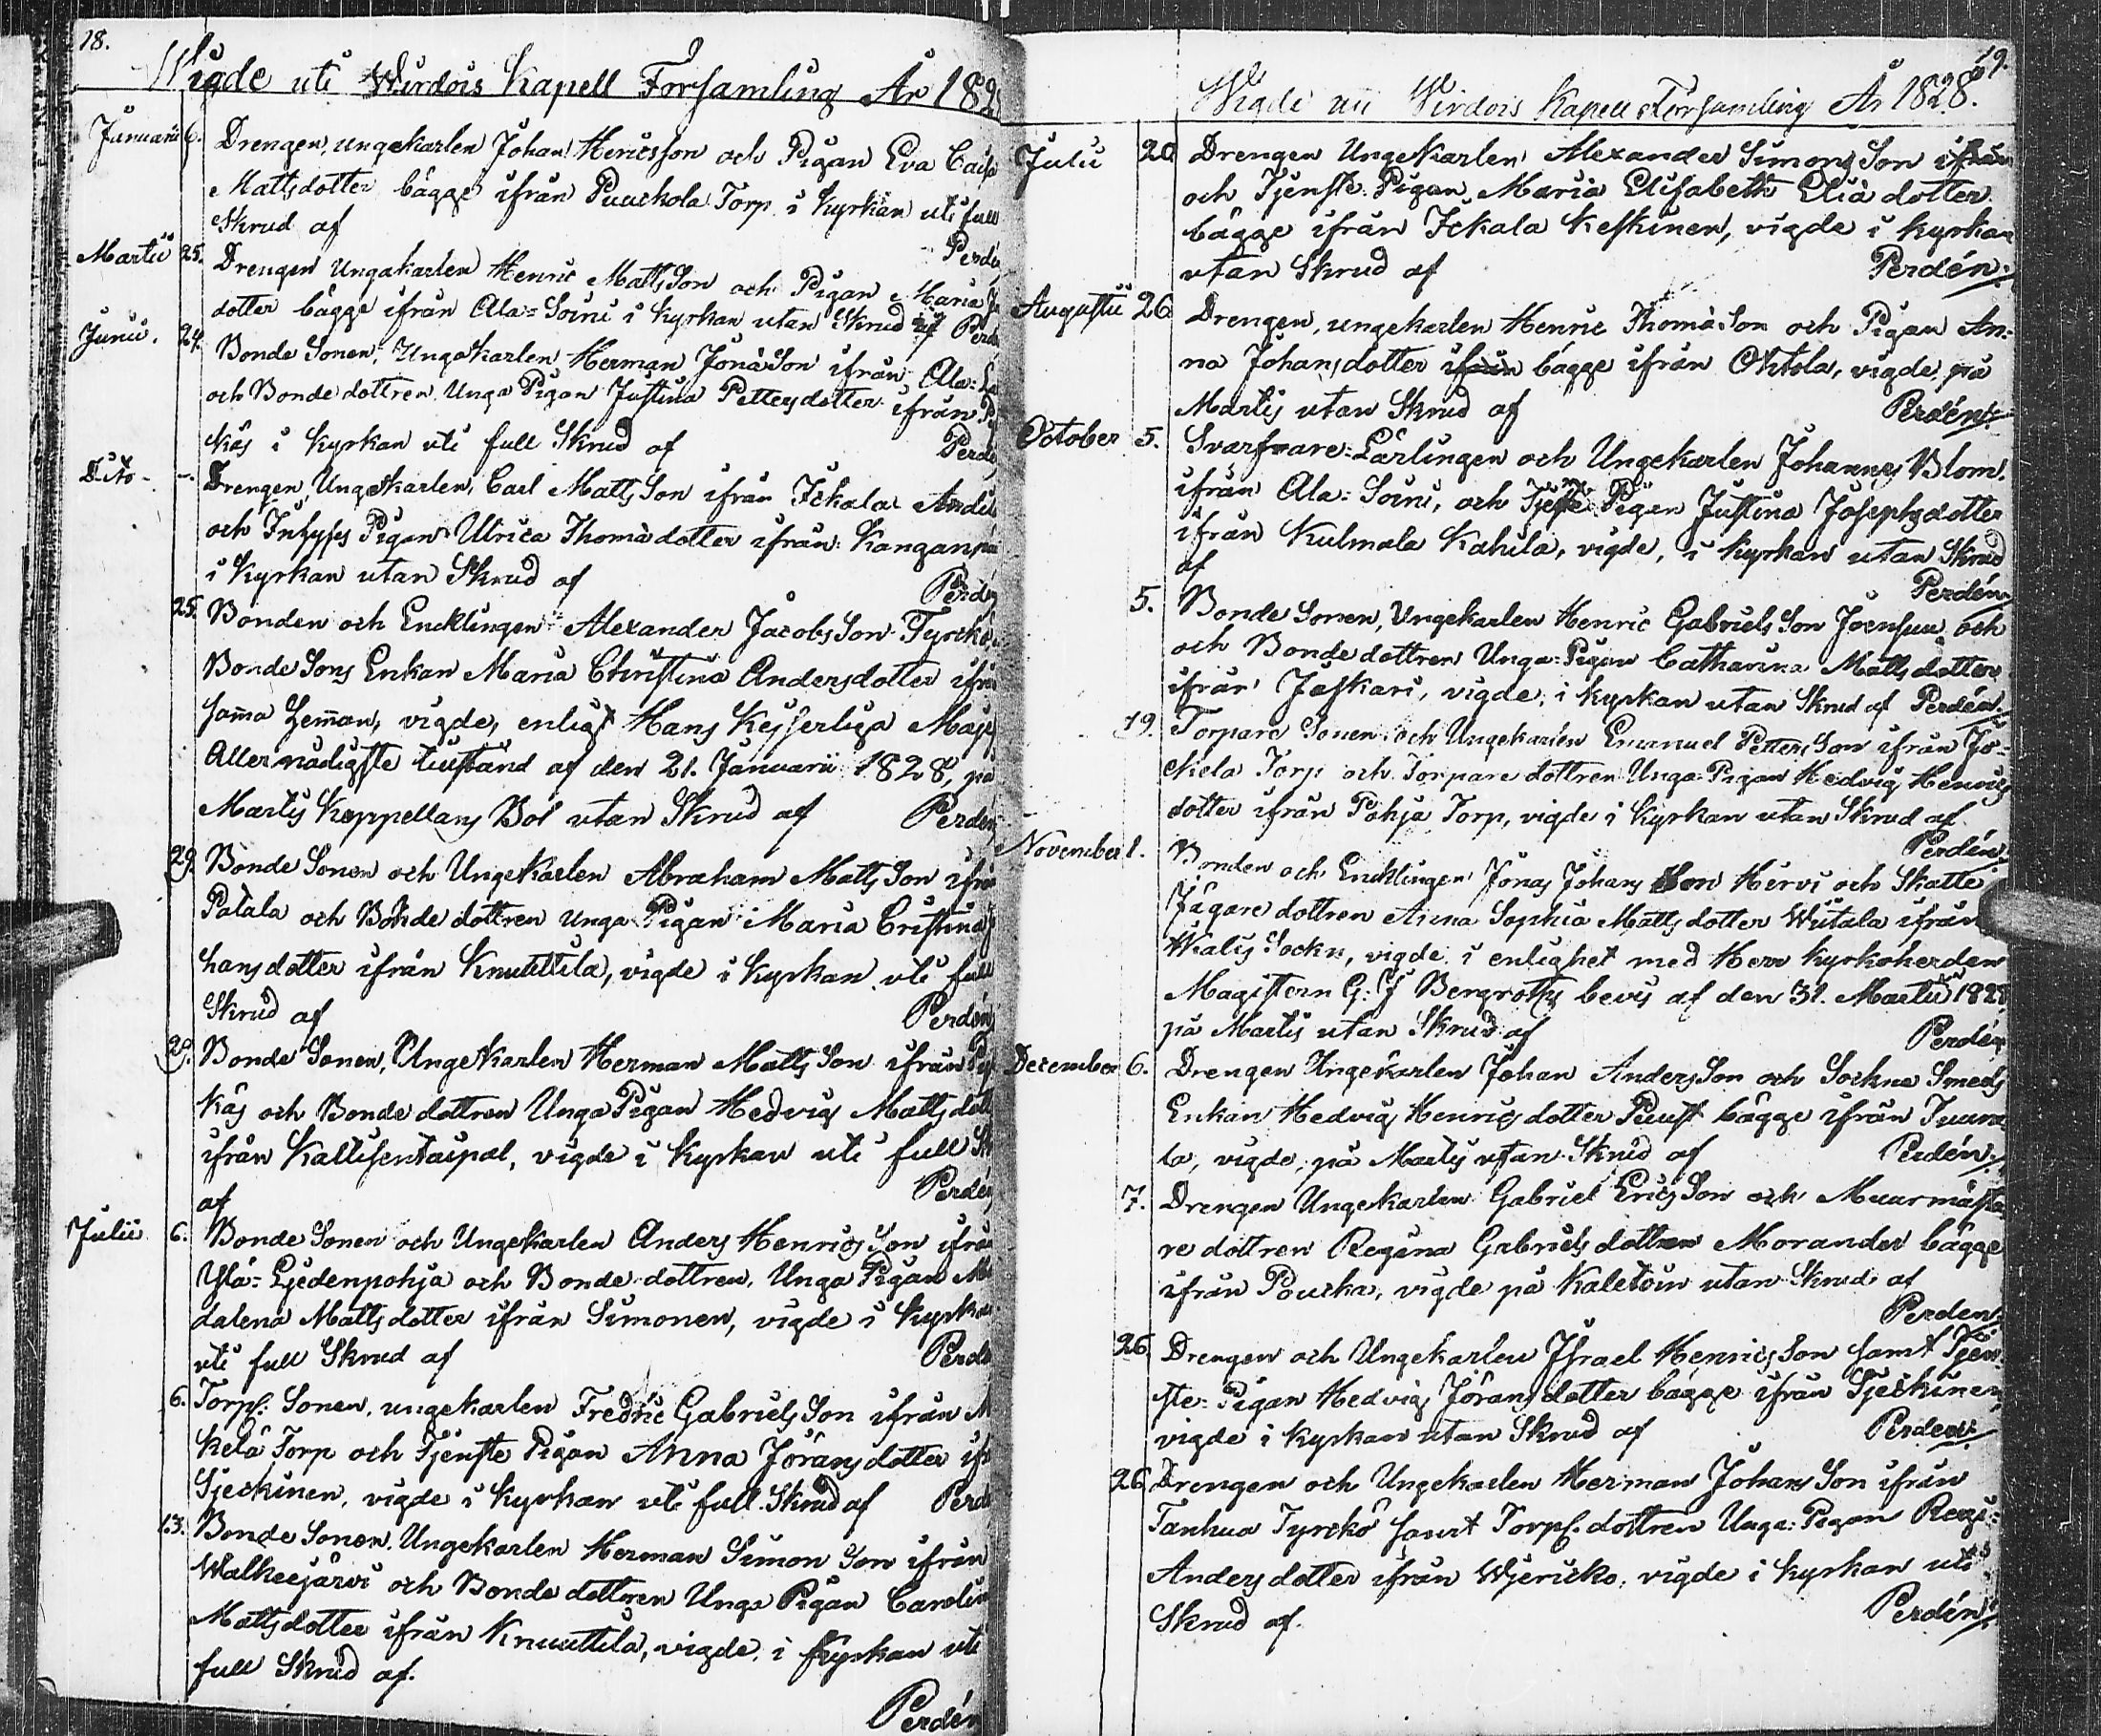 18.
Wigde uti Wirdois Kapell Församling År 182
Januarii 6. Drengen, ungekarlen Johan Henricsson och Pigan Eva Caisa
Mattsdotter bägge ifrån Puuckola Torp i Kyrkan uti full
Skrud af Perdé
Martii 25. Drengen Ungakarlen Henric Matts Son och Pigan Maria
dotter bägge ifrån Ala-Soini i Kyrkan utan Skrud af Perdé
Junii. 24. Bonde Sonen, Ungakarlen Herman Jonä Son ifrån Ala-
och Bonde dottren Unga Pigan Justina Pettersdotter ifrån
käs i Kyrkan uti full Skrud af Perdé
Dito - -. Drengen, Ungekarlen, Carl Matts Son ifrån Ickala Andi
och Inhyses Pigan Ulrica Thomä dotter ifrån Kangan
i Kyrkan utan Skrud af Perdé
25. Bonden och Encklingen Alexander Jacobs Son Tyrckö
Bonde Sons Enkan Maria Christina Andersdotter ifrån
samma Hemman, vigde, enligt Hans Kejserliga Maj
Allernådigste tilstånd af den 21. Januarii 1828, på
Martis Keppellans Bol utan Skrud af Perdén
29. Bonde Sonen och Ungekarlen Abraham Matts Son ifrån
Patala och Bonde dottren unga Pigan Maria Cristina
hans dotter ifrån Knuuttila, vigde i Kyrkan uti full
Skrud af Perdén
29. Bonde Sonen, Ungekarlen Herman Matts Son ifrån
käs och Bonde dottren Unga Pigan Hedvig Matts dott
ifrån Kallisentaipal, vigde i Kyrkan uti full
af Perdé
Julii 6. Bonde Sonen och Ungekarlen Anders Henrics Son ifrån
Ylä-Liedenpohja och Bonde dottren, Unga Pigan
dalena Matts dotter ifrån Simonen, vigde i Kyrka
uti full Skrud af Perdé
6. Torp. Sonen, ungekarlen Fredric Gabriels Son ifrån
kelä Torp och Tjenste Pigan Anna Jörans dotter
Sjeckinen, vigde i Kyrkan uti full Skrud af Perdé
13. Bonde Sonen, Ungekarlen Herman Simon Son ifrån
Walkeejärvi och Bonde dottren Unga Pigan Carolin
Mattsdotter ifrån Knuuttila, vigde i Kyrkan uti
full Skrud af.
Perdén
19.
Wigde uti Wirdois Kapell Församling År 1828.
Julii 20 Drengen Ungekarlen Alexander Simons Son ifrån
och Tjenste Pigan Maria Elisabeth Eliä dotter
bägge ifrån Ickala Keskinen, vigde i Kyrkan
utan Skrud af Perdén.
Augustii 26 Drengen, ungekarlen Henric Thomä Son och Pigan An-
na Johans dotter ifrån bägge ifrån Ohtola, vigde på
Martis utan Skrud af Perdén.
October 5. Svarfvare Lärlingen och Ungekarlen Johannes Blom
ifrån Ala-Soini, och Pigan Justina Josephsdotter
ifrån Kulmala Kahila, vigde, i Kyrkan utan Skrud
af Perdén
5. Bonde Sonen, Ungekarlen Henric Gabriels Son Joensuu och
och Bonde dottren Unga Pigan Catharina Matts dotter
ifrån Jäskari, vigde, i Kyrkan utan Skrud af Perdén.
19. Torpare Sonen och Ungekarlen Emanuel Petters Son ifrån Jo-
kela Torp och Torpare dottren Unga Pigan Hedvig Henrics
dotter ifrån Pohja Torp, vigde i Kyrkan utan Skrud af
Perdén
November 1. Bonden och Encklingen Jonas Johans Son Hirvi och Skatte
Jägare dottren Anna Sophia Matts dotter Wiitala ifrån
Sockn, vigde i enlighet med Herr Kyrkoherden
Magistern G: J Bergroths bevis af den 31. Martii 1828
på Martis utan Skrud af Perdén
December 6. Drengen Ungekarlen Johan Anders Son och Sockne Smeds
Enkan Hedvig Henrics dotter Puust bägge ifrån Tuura
la, vigde, på Martis utan Skrud af Perdén.
7. Drengen Ungekarlen Gabriel Erics Son och Muurmästa
re dottren Regina Gabriels dotter Morander bägge
ifrån Poucka, vigde på Kaletoin utan Skrud af
Perden
26. Drengen och Ungekarlen Israel Henrics Son samt Tjen
ste Pigan Hedvig Jörans dotter bägge ifrån Sjeckinen
vigde i Kyrkan utan Skrud af Perden.
26. Drengen och Ungekarlen Herman Johans Son ifrån
Tanhua Tyrckö samt Torps. dottren Unga Pigan Regi-
Anders dotter ifrån Wjericko, vigde i Kyrkan uti
Skrud af. Perdén.